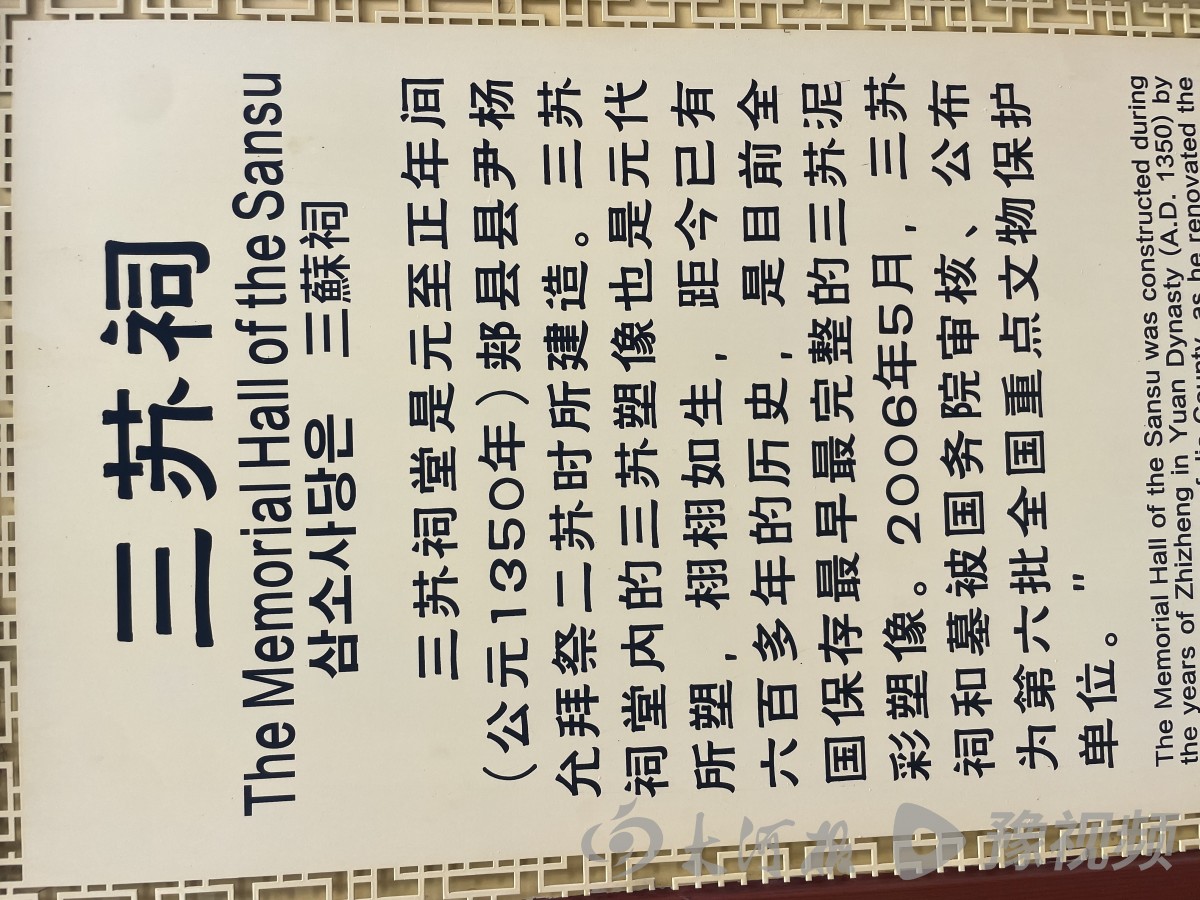 三苏祠
The Memorial Hall of the Sansu
삼소사당은 三蘇祠
三苏祠堂是元至正年间
（公元1350年）郏县县尹杨
允拜祭二苏时所建造。三苏
祠堂内的三苏塑像也是元代
所塑，栩栩如生，距今已有
六百多年的历史，是目前全
国保存最早最完整的三苏泥
彩塑像。2006年5月，三苏
祠和墓被国务院审核、公布
为第六批全国重点文物保护
单位。”
The Memorial Hall of the Sansu was constructed during
the years of Zhizheng in Yuan Dynasty (A.D. 1350) by
as he renovated the
大河报 豫视频